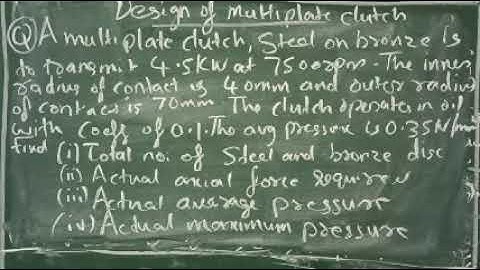 Design of multiplate clutch
Q A multiplate clutch, Steel on bronze is
to transmit 4.5KW at 750rpm. The inner
radius of contact is 40mm and outer radius
of contact is 70mm. The clutch operates in oil
with Coeff of 0.1. The avg pressure is 0.35N/mm
find (i) Total no: of Steel and bronze disc
(ii) Actual axial force required
(iii) Actual average pressure
(iv) Actual maximum pressure